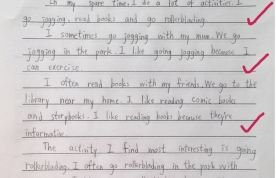 In my spare time, I do a lot of activities. I
go jogging, read books and go rollerblading.
I sometimes go jogging with my mum. We go
jogging in the park. I like going jogging because I
can exercise.
I often read books with my friends. We go to the
library near my home. I like reading comic books
and storybooks. I like reading books because they're
informative.
The activity I find most interesting is going
rollerblading. I often go rollerblading in the park with